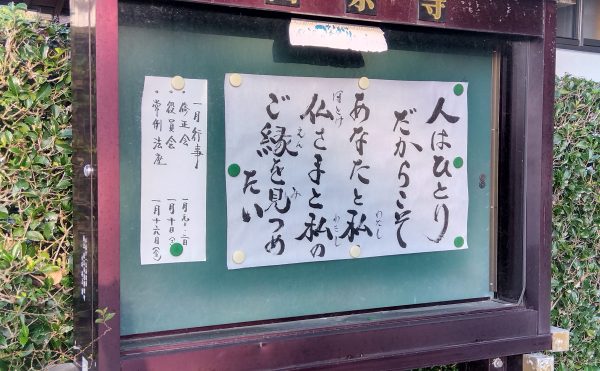 寺
人はひとり
だからこそ
わたし
あなたと私、
ほとけ わたし
仏さまと私の
えん み
ご縁を見つめ
たい
一月行事
・修正会 一月元・二日
・役員会 一月十日
・常例法座 一月十六日(金)